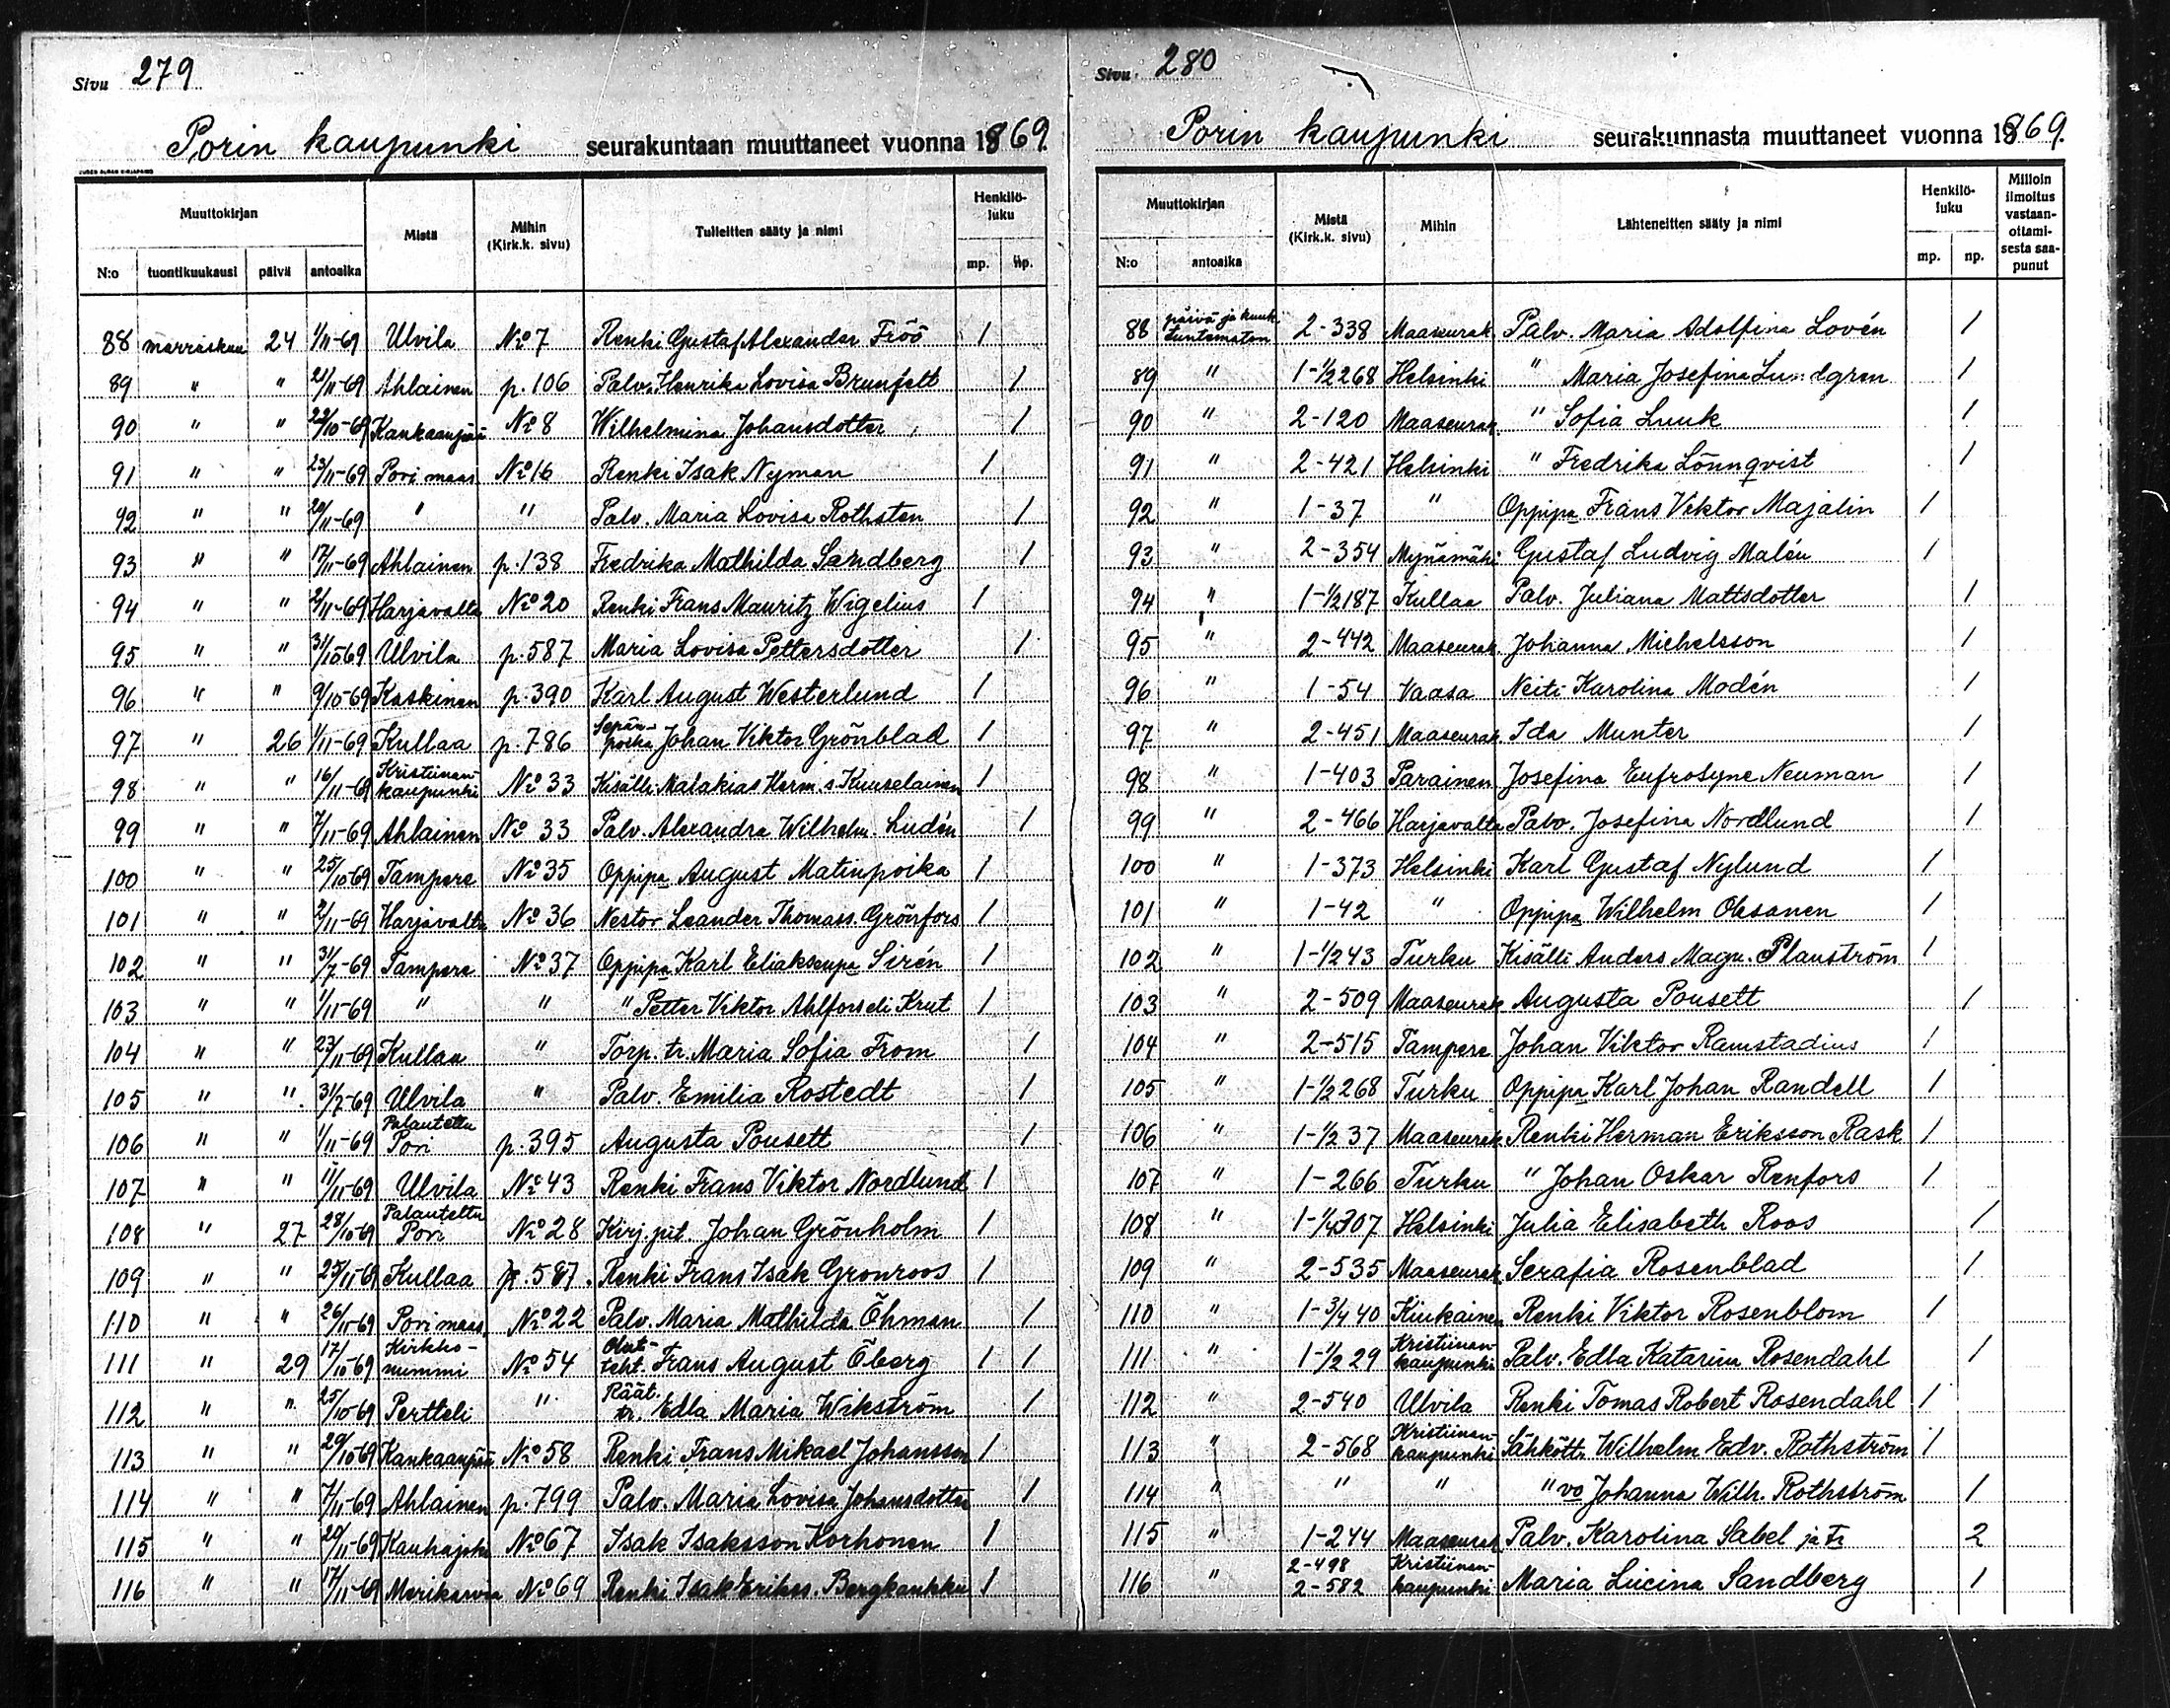 Sivu 279
Porin kaupunki seurakuntaan muuttaneet vuonna 1869
Muuttokirjan Mistä Mihin (Kirk.k. sivu) Tulleitten sääty ja nimi Henkilö-luku
N:o tuontikuukausi päivä antoaika mp. np.
88 marraskuu 24 1/11-69 Ulvila No 7 Renki Gustaf Alexander Fröö 1
89 " " 21/11-69 Ahlainen p.106 Palv. Henrika Lovisa Brunfelt 1
90 " " 22/10-69 Kankaanpää No 8 Wilhelmina Johansdotter 1
91 " " 23/11-69 Pori maas No 16 Renki Isak Nyman 1
92 " " 20/11-69 " " Palv. Maria Lovisa Rothsten 1
93 " " 17/11-69 Ahlainen p.138 Fredrika Mathilda Sandberg 1
94 " " 2/11-69 Harjavalta No 20 Renki Frans Mauritz Wigelius 1
95 " " 31/10-69 Ulvila p.587 Maria Lovisa Pettersdotter 1
96 " " 9/10-69 Kaskinen p.390 Karl August Westerlund 1
97 " 26 1/11-69 Kullaa p.786 Sepän-poika Johan Viktor Grönblad 1
98 " " 16/11-69 Kristiinan-kaupunki No 33 Kisälli Malakias Herm.s. Kuuselainen 1
99 " " 7/11-69 Ahlainen No 33 Palv. Alexandra Wilhelm. Ludén 1
100 " " 25/10-69 Tampere No 35 Oppipa August Matinpoika 1
101 " " 2/11-69 Harjavalta No 36 Nestor Leander Thomass. Grönfors 1
102 " " 31/7-69 Tampere No 37 Oppipa Karl Eliaksenpa Sirén 1
103 " " 1/11-69 " " " Petter Viktor Ahlfors eli Krut 1
104 " " 23/11-69 Kullaa " Torp. tr. Maria Sofia From 1
105 " " 31/7-69 Ulvila " Palv. Emilia Rostedt 1
106 " " 1/11-69 Palautettu Pori p.395 Augusta Pousett 1
107 " " 11/11-69 Ulvila No 43 Renki Frans Viktor Nordlund 1
108 " 27 28/10-69 Palautettu Pori No 28 Kirj. pit. Johan Grönholm 1
109 " " 25/11-69 Kullaa p.587. Renki Frans Isak Gronroos 1
110 " " 26/11-69 Pori maas. No 22 Palv. Maria Mathilda Öhman 1
111 " 29 17/10-69 Kirkko-nummi No 54 Olut-teht. Frans August Öberg 1 1
112 " " 25/10-69 Pertteli " Räät. tr. Edla Maria Wikström 1
113 " " 29/10-69 Kankaanpää No 58 Renki Frans Mikael Johansson 1
114 " " 7/11-69 Ahlainen p.799 Palv. Maria Lovisa Johansdotter 1
115 " " 20/11-69 Kauhajoki No 67 Isak Isaksson Korhonen 1
116 " " 17/11-69 Merikarvia No 69 Renki Isak Erikss. Bergkaukku 1
Sivu 280
Porin kaupunki seurakunnasta muuttaneet vuonna 1869.
Muuttokirjan Mistä (Kirk.k. sivu) Mihin Lähteneitten sääty ja nimi Henkilö-luku Milloin ilmoitus vastaan-ottami-sesta saa-punut
N:o antoaika mp. np.
88 päivä ja kuuk. tuntematon 2-338 Maaseurak. Palv. Maria Adolfina Lovén 1
89 " 1-1/2 268 Helsinki " Maria Josefina Lundgren 1
90 " 2-120 Maaseurak. " Sofia Luuk 1
91 " 2-421 Helsinki " Fredrika Lönnqvist 1
92 " 1-37 " Oppipa Frans Viktor Majalin 1
93 " 2-354 Mynämäki Gustaf Ludvig Malén 1
94 " 1-1/2 187 Kullaa Palv. Juliana Mattsdotter 1
95 " 2-442 Maaseurak. Johanna Michelsson 1
96 " 1-54 Vaasa Neiti Karolina Modén 1
97 " 2-451 Maaseurak. Ida Munter 1
98 " 1-403 Parainen Josefina Eufrosyne Neuman 1
99 " 2-466 Harjavalta Palv. Josefina Nordlund 1
100 " 1-373 Helsinki Karl Gustaf Nylund 1
101 " 1-42 " Oppipa Wilhelm Oksanen 1
102 " 1-1/2 43 Turku Kisälli Anders Magn. Planström 1
103 " 2-509 Maaseurak. Augusta Pousett 1
104 " 2-515 Tampere Johan Viktor Ramstadius 1
105 " 1-1/2 268 Turku Oppipa Karl Johan Randell 1
106 " 1-1/2 37 Maaseurak Renki Herman Eriksson Rask 1
107 " 1-266 Turku " Johan Oskar Renfors 1
108 " 1-1/4 307 Helsinki Julia Elisabeth Roos 1
109 " 2-535 Maaseurak Serafia Rosenblad 1
110 " 1-3/4 40 Kiukainen Renki Viktor Rosenblom 1
111 " 1-1/2 29 Kristiinan-kaupunki Palv. Edla Katarina Rosendahl 1
112 " 2-540 Ulvila Renki Tomas Robert Rosendahl 1
113 " 2-568 Kristiinan-kaupunki Sähkött. Wilhelm Edv. Rothström 1
114 " " " " vo Johanna Wilh. Rothström 1
115 " 1-244 Maaseurak Palv. Karolina Sabel ja tr 2
116 " 2-498 2-582 Kristiinan-kaupunki Maria Lucina Sandberg 1